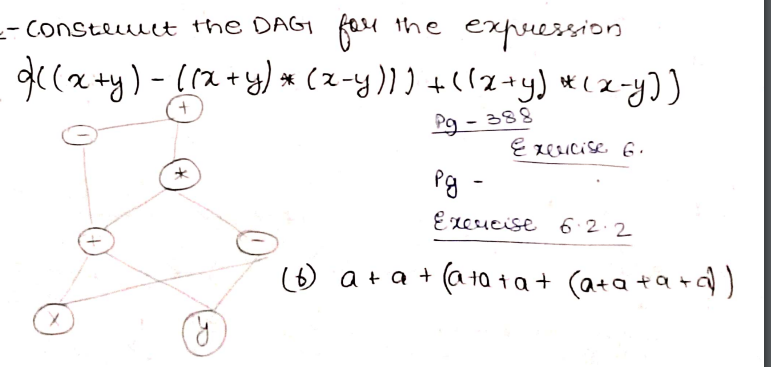 - Construct the DAG for the expression
((x+y) - ((x+y) * (x-y))) + ((x+y) * (x-y))
+
Pg - 388
-
Exercise 6.
*
Pg -
+
-
Exercise 6.2.2
(b) a + a + (a+a+a+ (a+a+a+a))
x
y